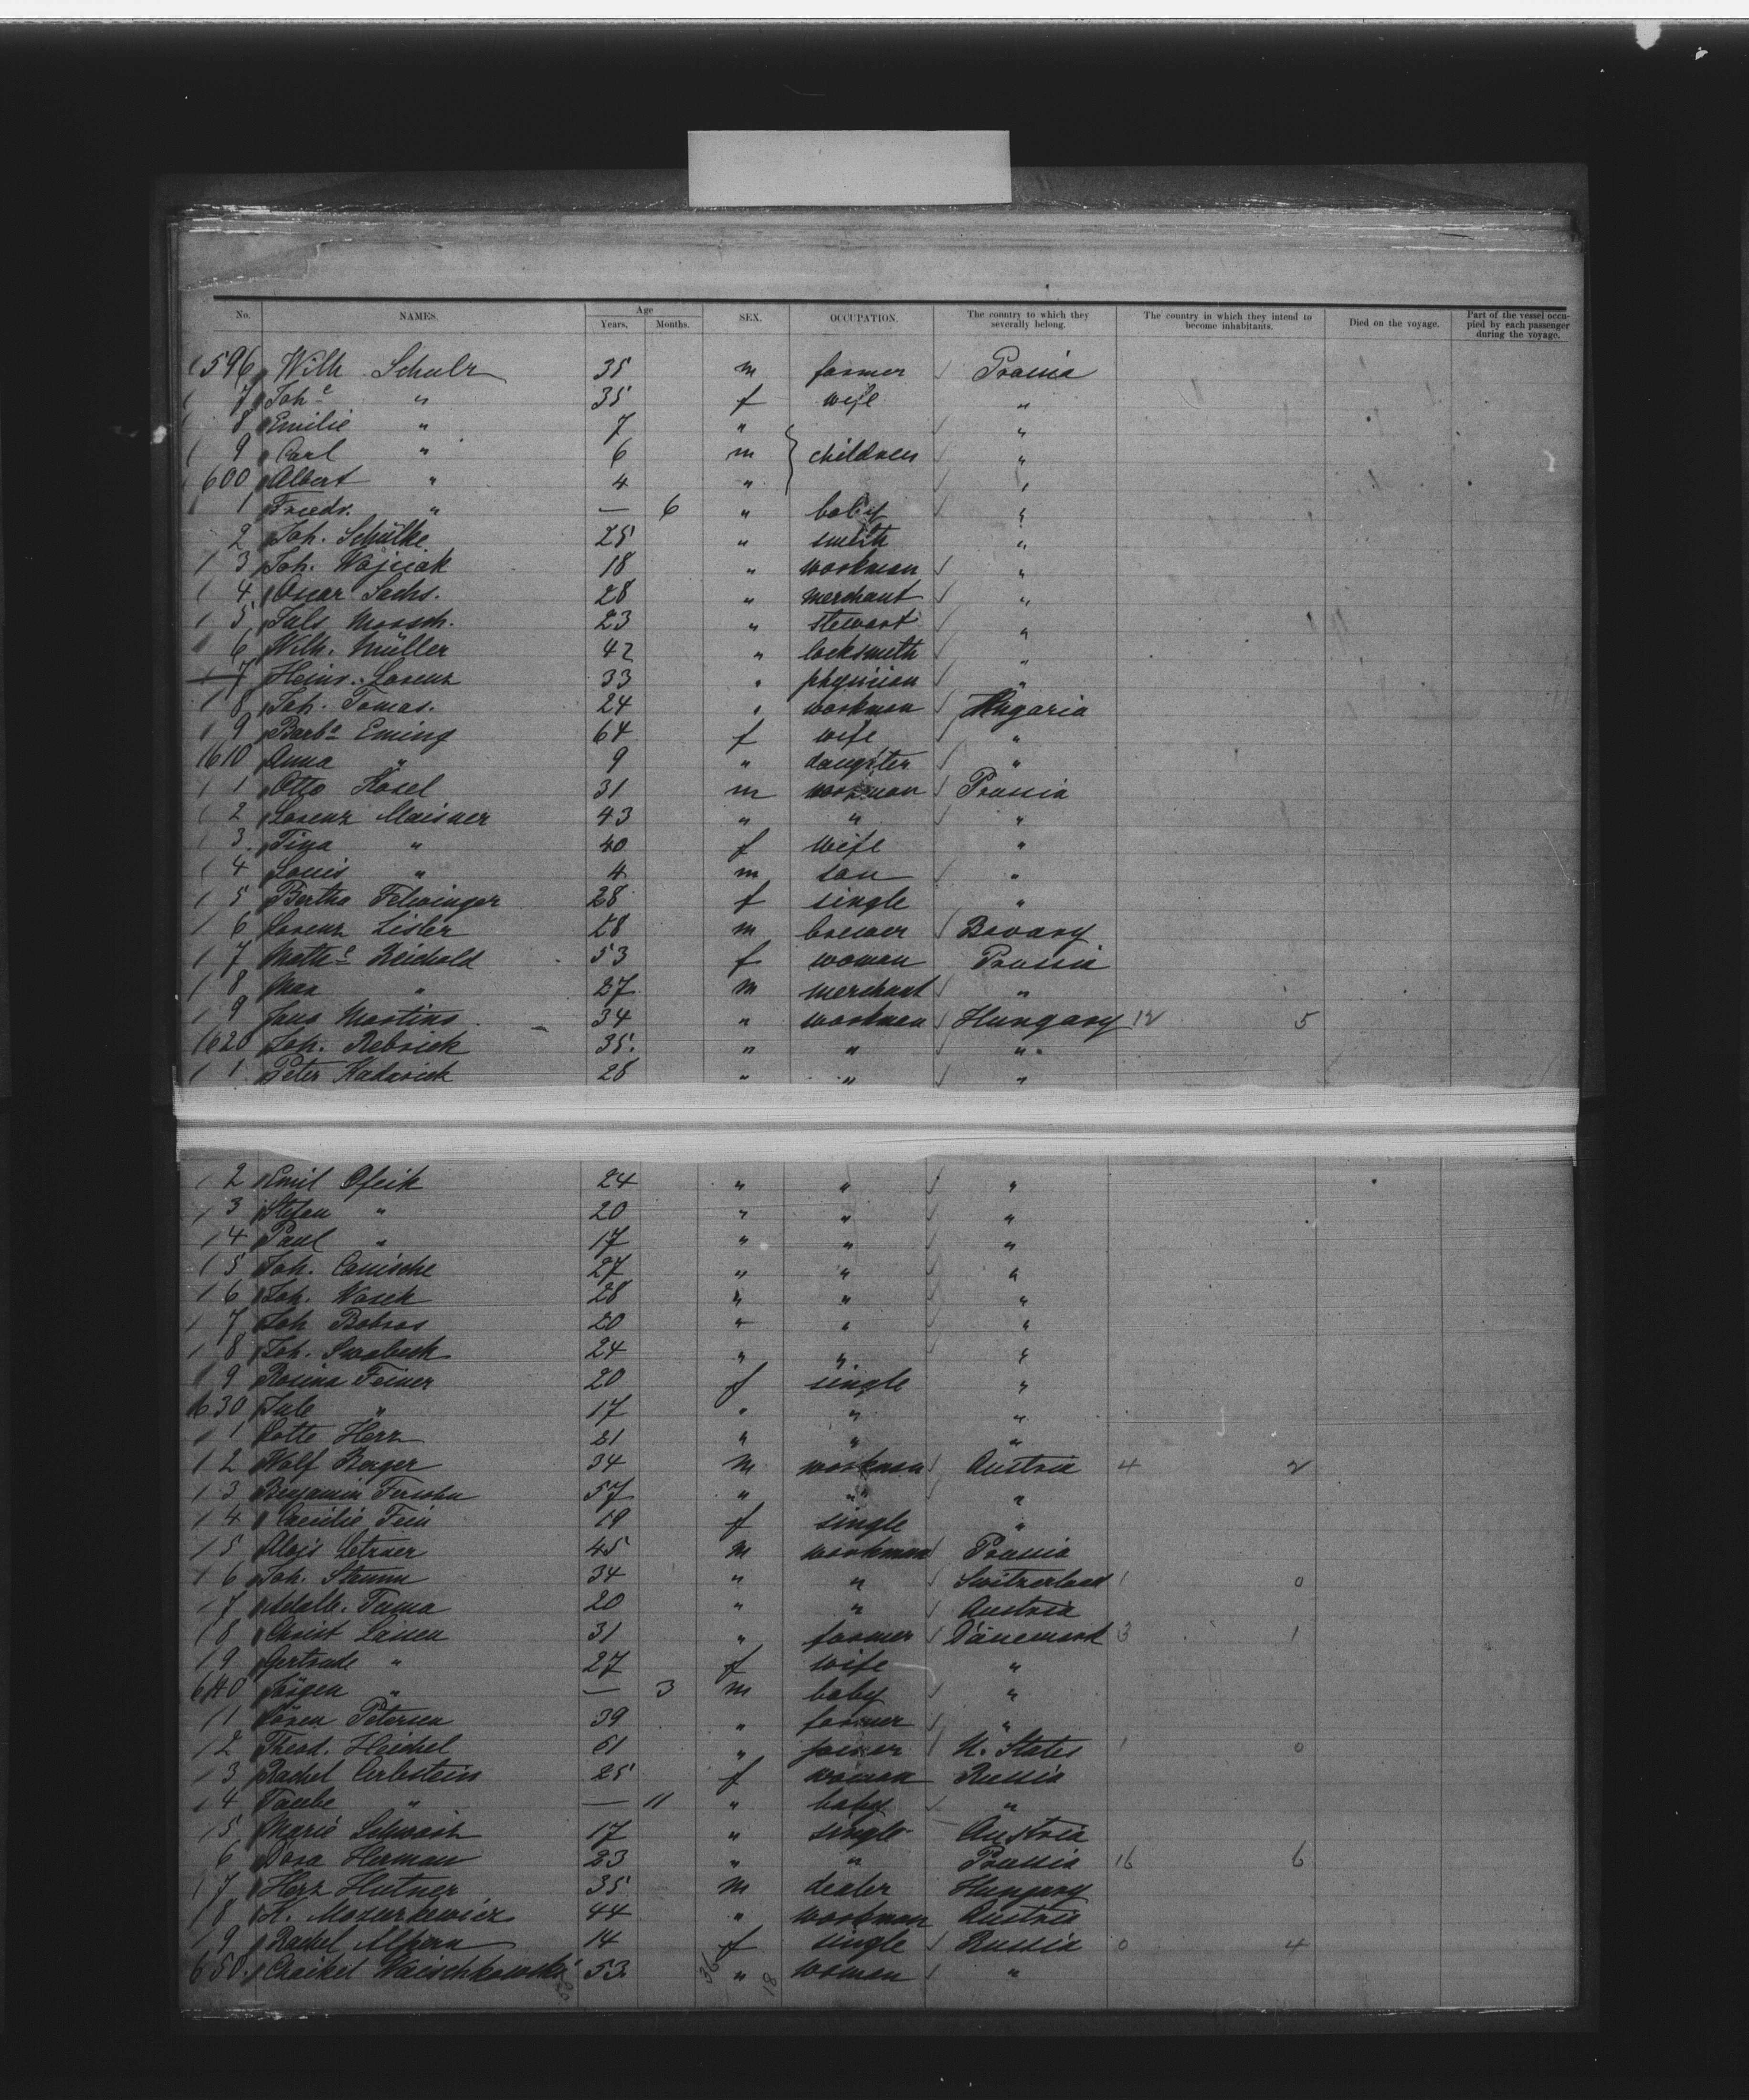 No. NAMES. Age Years, Months. SEX. OCCUPATION. The country to which they severally belong. The country in which they intend to become inhabitants. Died on the voyage. Part of the vessel occupied by each passenger during the voyage.
596 Wilh Schulz 35 m farmer Prussia
7 Joh.e " 35 f wife "
8 Emilie " 7 " "
9 Carl " 6 m children "
600 Albert " 4 " "
1 Friedr. " — 6 " baby "
2 Joh. Schülke 25 " smith "
3 Joh. Wojciak 18 " workman "
4 Oscar Sachs. 28 " merchant "
5 Juls 23 " stewart "
6 Wilh. Müller 42 " locksmith "
7 Heinr. Lorenz 33 " physician "
8 Joh. Tomas. 24 " workman Hngaria
9 Barba Eming 64 f wife "
1610 Anna " 9 " daugter "
1 Otto Hösel 31 m workman Prussia
2 Lorenz Maisner 43 " " "
3 Tina " 40 f wife "
4 Louis " 4 m son "
5 Bertha 28 f single "
6 Lorenz Lisler 28 m brewer Bavary
7 Reichold 53 f woman Prussia
8 Max " 27 m merchant "
9 Martins 34 " workman Hungary 12 5
1620 Joh. Rebrick 35. " " "
1 Peter Hadarick 28 " " "
2 Emil Ofcik 24 " " "
3 Stefan " 20 " " "
4 Paul " 17 " " "
5 Joh. 27 " " "
6 Joh. 28 " " "
7 Joh. Bobros 20 " " "
8 Joh. 24 " " "
9 Rosina Feiner 20 f single "
630 Jule " 17 " " "
1 Lotte Herz 21 " " "
2 Wolf Berger 34 m workman Austria 4 2
3 Benjamin 57 " " "
4 Caecilie Fein 19 f single "
5 Alois 45 m workman Prussia
6 Joh. Stamm 34 " " Switzerland 1 0
7 Adalb. Tuma 20 " " Austria
8 Christ Lassen 31 " farmer Dänemark 3 1
9 Gertrude " 27 f wife "
640 Jörgen " — 3 m baby "
1 Sören Petersen 39 " farmer "
2 Theod. Heichel 61 " joiner U. States 1 0
3 Rachel 25 f woman Russia
4 Taube " — 11 " baby "
5 Marie Schwarz 17 " single Austria
6 Dora Herman 23 " " Prussia 16 6
7 Herz Hutner 35 m dealer Hungary
8 K. Mazurkewicz 44 " workman Austria
9 Rachel Alpern 14 f single Russia 0 4
650. Chaikel Waischkowski 53. " woman "
36 18